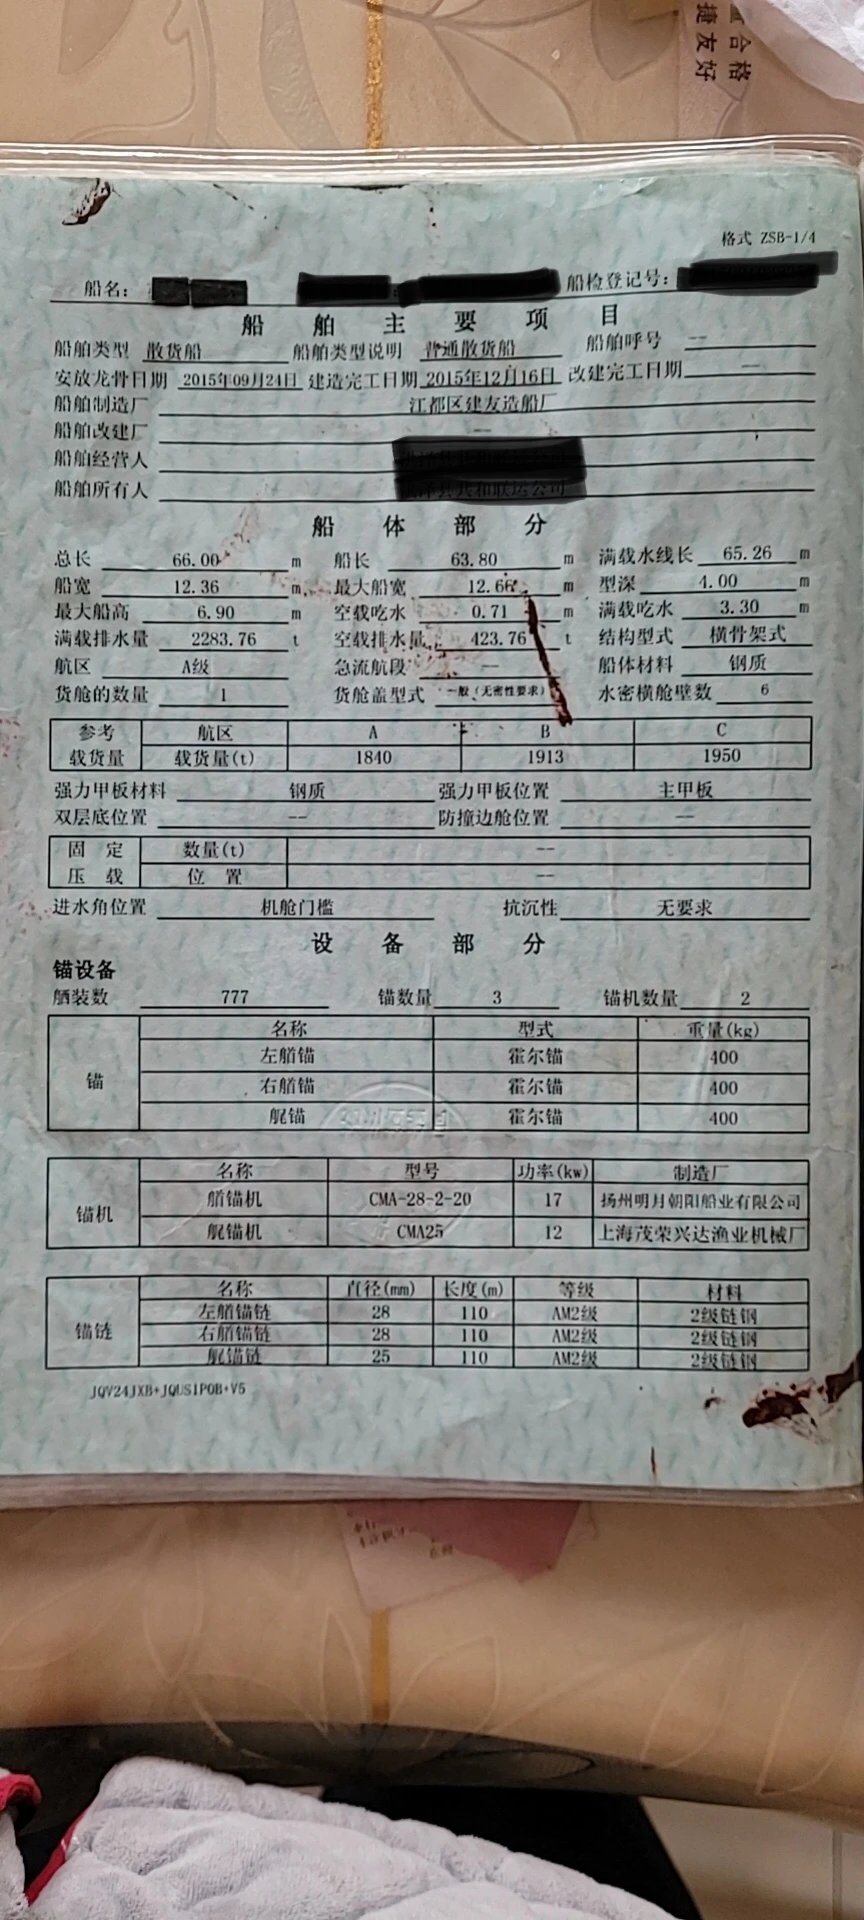 重合格
捷友好
格式 ZSB-1/4
船名： 船检登记号：
船舶主要项目
船舶类型 散货船 船舶类型说明 普通散货船 船舶呼号 --
安放龙骨日期 2015年09月24日 建造完工日期 2015年12月16日 改建完工日期 --
船舶制造厂 江都区建友造船厂
船舶改建厂 --
船舶经营人
船舶所有人
船体部分
总长 66.00 m 船长 63.80 m 满载水线长 65.26 m
船宽 12.36 m 最大船宽 12.66 m 型深 4.00 m
最大船高 6.90 m 空载吃水 0.71 m 满载吃水 3.30 m
满载排水量 2283.76 t 空载排水量 423.76 t 结构型式 横骨架式
航区 A级 急流航段 -- 船体材料 钢质
货舱的数量 1 货舱盖型式 一般（无密性要求） 水密横舱壁数 6
参考 航区 A B C
载货量 载货量(t) 1840 1913 1950
强力甲板材料 钢质 强力甲板位置 主甲板
双层底位置 -- 防撞边舱位置 --
固定 数量(t) --
压载 位置 --
进水角位置 机舱门槛 抗沉性 无要求
设备部分
锚设备
舾装数 777 锚数量 3 锚机数量 2
锚 名称 型式 重量(kg)
左艏锚 霍尔锚 400
右艏锚 霍尔锚 400
艉锚 霍尔锚 400
锚机 名称 型号 功率(kw) 制造厂
艏锚机 CMA-28-2-20 17 扬州明月朝阳船业有限公司
艉锚机 CMA25 12 上海茂荣兴达渔业机械厂
锚链 名称 直径(mm) 长度(m) 等级 材料
左艏锚链 28 110 AM2级 2级链钢
右艏锚链 28 110 AM2级 2级链钢
艉锚链 25 110 AM2级 2级链钢
JQV24JXB+JQUS1P0B+V5